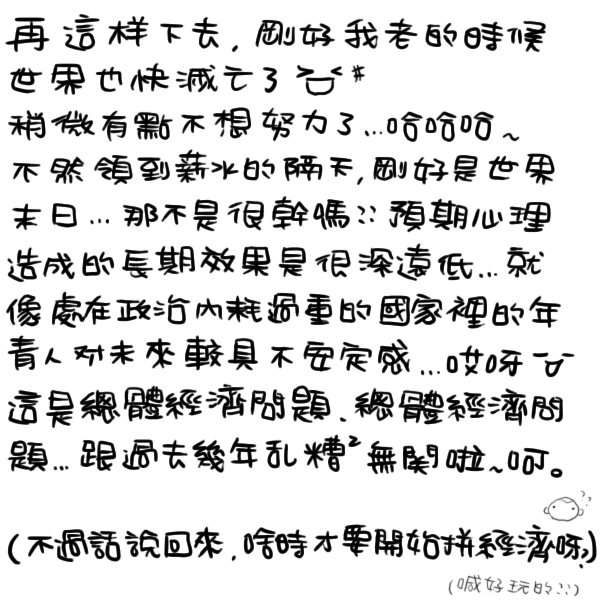 再這样下去,剛好我老的時候
世界也快減亡了 #
稍微有點不想努力了...哈哈哈~
不然領到薪水的隔天,剛好是世界
末日...那不是很幹嗎?? 預期心理
造成的長期效果是很深遠低...就
像處在政治內耗過重的國家裡的年
青人对未來較具不安定感...哎呀
這是總體經濟問題、總體經濟問
題...跟過去幾年乱糟²無関啦~呵。
??
(不過話說回來,啥時才要開始拼經濟呀?)
(喊好玩的??)